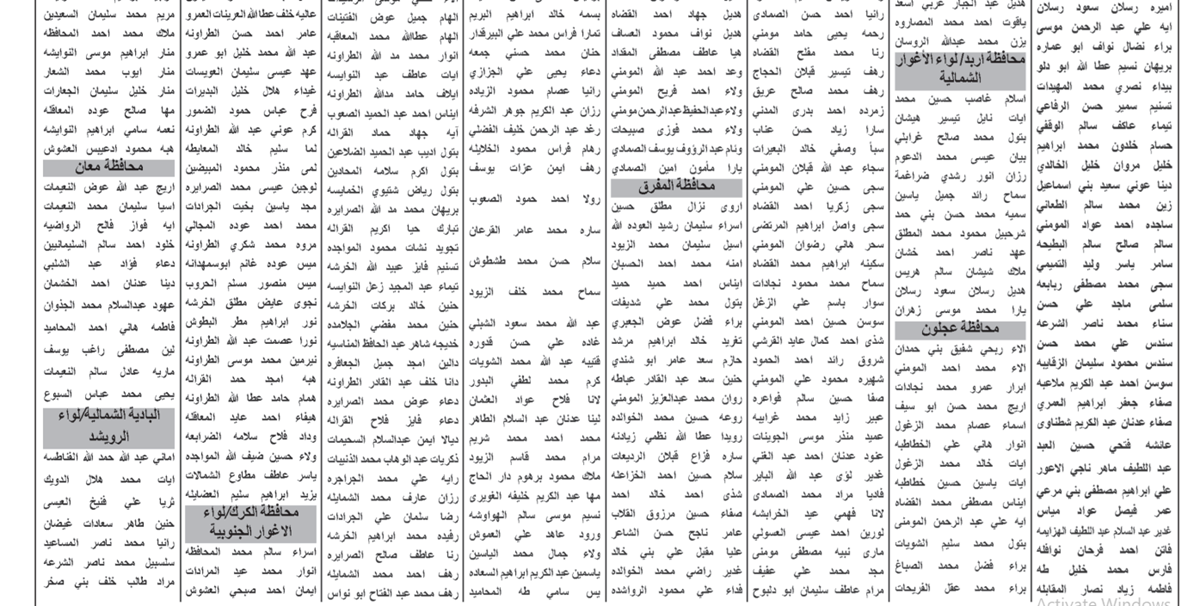 اميره رسلان سعود رسلان
ايه علي عبد الرحمن موسى
براء نضال نواف ابو عماره
بريهان نسيم عطا الله ابو دلو
بيداء نصري محمد المهيدات
تسنيم سمير حسن الرفاعي
تيماء عاكف سالم الوقفي
حسام خلدون محمد ابراهيم
خليل مروان خليل الخالدي
دينا عوني سعيد بني اسماعيل
زين محمد سالم الطعاني
ساجده احمد عواد المومني
سالم صالح سالم البطيحه
سامر ياسر وليد التميمي
سجى محمد مصطفى ربابعه
سلمى ماجد علي حسن
سناء محمد ناصر الشرعه
سندس علي محمد حسن
سندس محمود سليمان الزقايبه
سوسن احمد عبد الكريم ملاعبه
صفاء جعفر ابراهيم العمري
صفاء عدنان عبد الكريم شطناوي
عائشه فتحي حسين العبد
عبد اللطيف ماهر ناجي الاعور
علي ابراهيم مصطفى بني مرعي
عمر فيصل عواد مياس
غدير عبد السلام عبد اللطيف الهزايمه
فاتن احمد فرحان نوافله
فارس محمد خليل طه
فاطمه زياد نصار المقابله
هديل عبد الجبار عربي اسعد
ياقوت احمد محمد المصاروه
يزن محمد عبدالله الروسان
محافظة اربد/ لواء الأغوار
الشمالية
اسلام غاصب حسين محمد
ايات نايل تيسير هيشان
بتول محمد صالح غرايلي
بيان عيسى محمد الدعوم
رزان انور رشدي ضراغمة
سماح رائد جميل ياسين
سميه محمد حسن بني حمد
شرحبيل محمود محمد المطلق
عهد ناصر احمد خشان
ملاك شيشان سالم هريس
هديل رسلان سعود رسلان
يارا محمد موسى زهران
محافظة عجلون
الاء ربحي شفيق بني حمدان
الاء محمد احمد المومني
ابرار عمرو محمد نجادات
اريج محمد حسن ابو سيف
اسماء عصام محمد الزغول
انوار هاني علي الخطاطبه
ايات خالد محمد الزغول
ايات ياسين حسين خطاطبه
ايناس مصطفى محمد القضاه
ايه علي عبد الرحمن المومني
بتول محمد سليم الشويات
براء فضل محمد الصباغ
براء محمد عقل الفريحات
رانيا احمد حسن الصمادي
رحمه يحيى حامد مومني
رنا محمد مفلح القضاه
رهف تيسير قبلان الحجاج
رهف محمد صالح عريق
زمرده احمد بدري المدني
سارا زياد حسن عناب
سبأ وصفي خالد البعيرات
سجاء عبد الله قبلان المومني
سجى حسين علي المومني
سجى زكريا احمد القضاه
سجى واصل ابراهيم المرتضى
سحر هاني رضوان المومني
سكينه ابراهيم محمد القضاه
سماح محمد محمود نجادات
سوار باسم علي الزغل
سوسن حسين احمد المومني
شذى احمد كمال عايد القرشي
شروق رائد احمد الحمود
شهيره محمود علي المومني
صفا حسين سالم فواعره
عبير زايد محمد غرايبه
عميد منذر موسى الجوينات
عنود عدنان احمد عبد الغني
غدير لؤي عبد الله الباير
فاديا مراد محمد الصمادي
لانا فهمي عيد الخرابشه
لورين احمد عيسى العسولي
ماري نبيه مصطفى مومني
مجد محمد علي عفيف
مرام عاطف سليمان ابو دلبوح
هديل جهاد احمد القضاه
هديل نواف محمود العساف
هيا عاطف مصطفى المقداد
وعد احمد عبد الله المومني
ولاء احمد فريح المومني
ولاء عبدالحفيظ عبدالرحمن مومني
ولاء محمد فوزي صبيحات
ونام عبد الرؤوف يوسف الصمادي
يارا مأمون امين الصمادي
محافظة المفرق
اروى نزال مطلق حسين
اسراء سليمان رشيد العوده الله
اسيل سليمان محمد الزيود
امنه محمد احمد الحسبان
ايناس احمد حميد حميد
بتول محمد علي شديفات
براء فضل عوض الجعبري
تغريد خالد ابراهيم مرشد
حازم سعد عامر ابو شندي
حنين سعد عبد القادر عباطه
روان محمد عبدالعزيز المومني
روعه حسين محمد الخوالده
رويدا عطا الله نظمي زيادنه
ساره فزاع قبلان الرديعات
سلام حسين احمد الخزاعله
شذى احمد خالد احمد
صفاء حسين مرزوق القلاب
عامر ناجح حسن الشاعر
عليا مقبل علي بني خالد
غدير راضي محمد الخوالده
فداء محمود علي الرواشده
بسمه خالد ابراهيم البريم
تمارا فراس محمد علي البيرقدار
حنان محمد حسني جمعه
دعاء يحيى علي الجزازي
رانيا عصام محمود الزياده
رزان عبد الكريم جوهر الشرفه
رغد عبد الرحمن خليف الفضلي
رهام فراس محمود الخلايله
رهف ايمن عزات يوسف
رولا احمد حمود الصعوب
ساره محمد عامر القرعان
سلام حسن محمد طشطوش
سماح محمد خلف الزيود
عبد الله محمد سعود الشبلي
غاده علي حسن قدوره
قتيبه عبد الله محمد الشويات
كرم محمد لطفي البدور
لانا فلاح عواد العثمان
لينا عدنان عبد السلام الطاهر
محمد احمد محمد شريم
مرام محمد قاسم الزيود
ملاك محمود برهوم دار الحاج
مها عبد الكريم خليفه الغويري
نسيم موسى سالم الهواوشه
ورود عاهد علي العموش
ولاء جمال محمد الياسين
ياسمين عبد الكريم ابراهيم السعاده
يس سامي طه المحاميد
الهام جميل عوض الفتينات
الهام عطاالله محمد المعاقبه
انوار محمد مد الله الطراونه
ايات عاطف عبد النوايسه
ايلاف حامد مدالله الطراونه
ايناس احمد عبد الحميد الصعوب
آيه جهاد حماد القراله
بتول اديب عبد الحميد الضلاعين
بتول اكرم سلامه المحادين
بتول رياض شتيوي الخمايسه
بريهان محمد مد الله الصرايره
تبارك حيا اكريم القراله
تجويد نشات محمود المواجده
تسنيم فايز عبيد الله الخرشه
تيماء عبد المجيد زعل النوايسه
حنين خالد بركات الخرشه
حنين محمد مفضي الجلامده
خديجه شاهر عبد الحافظ المناسيه
دالين امجد جميل الجعافره
دانا خلف عبد القادر الطراونه
دعاء عواد احمد الطراونه
دعاء فايز فلاح القراله
ديالا ايمن عبدالسلام السحيمات
ذكريات عبد الوهاب محمد الذنيبات
رايه علي محمد الجراجره
رزان عارف محمد الشمايله
رضا سلمان علي الجرادات
رفيده محمد ابراهيم الخرشه
رنا عاطف صالح الصرايره
رهف احمد محمد الشمايله
رهف محمد عبد الفتاح ابو نواس
عاليه خلف عطاالله العرينات العمرو
عامر احمد حسن الطراونه
عبد الله محمد خليل ابو عمرو
عهد عيسى سليمان العويسات
غيداء هلال خليل البديرات
فرح عباس حمود الضمور
كرم عوني عبد الله الطراونه
لما سليم خالد المعايطه
لمى منذر محمود المبيضين
لوجين عيسى محمد الصرايره
مجد ياسين بخيت الجرادات
محمد احمد عوده المجالي
مروه محمد شكري الطراونه
ميس عوده غانم ابوسمهدانه
ميس منصور مسلم الحروب
نجوى عايض مطلق الخرشه
نور ابراهيم مطر البطوش
نورا عصمت عبد الله الطراونه
نيرمين محمد موسى الطراونه
هبه امجد حمد القراله
همام حامد عطا الله الطراونه
هيفاء احمد عايد المعاقله
وداد فلاح سلامه الضرابعه
ولاء حسين ضيف الله المواجده
ياسر عاطف مطاوع الشمالات
يزيد ابراهيم سليم العضايله
محافظة الكرك/لواء
الاغوار الجنوبية
اسراء سالم محمد المحافظه
انوار محمد عيد المرادات
ايمان احمد صبحي العشوش
مريم محمد سليمان السعيدين
ملاك محمد احمد المحافظه
منار ابراهيم موسى النوايشه
منار ايوب محمد الشعار
منار خليل سليمان الجعارات
مها صالح عوده المعاقله
نعمه سامي ابراهيم النوايشه
هبه محمود ادعيبس العشوش
محافظة معان
اريج عبد الله عوض النعيمات
اسيا سليمان محمد النعيمات
ايه فواز فالح الرواضيه
خلود احمد سالم السليمانيين
دعاء فؤاد عبد الشلبي
دينا عدنان احمد الخشمان
عهود عبدالسلام محمد الجذوان
فاطمه هاني احمد المحاميد
لين مصطفى راغب يوسف
ماريه عادل سالم النعيمات
يحيى محمد عباس السبوع
البادية الشمالية/لواء
الرويشد
اماني عبد الله حمد الله القناطسه
ايات محمد هلال الدويك
ثريا علي فنيخ العيسى
حنين طاهر سعادات غيضان
رانيا محمد ناصر المساعيد
سلسبيل محمد ناصر الشرعه
مراد طالب خلف بني صخر
Activate Windows